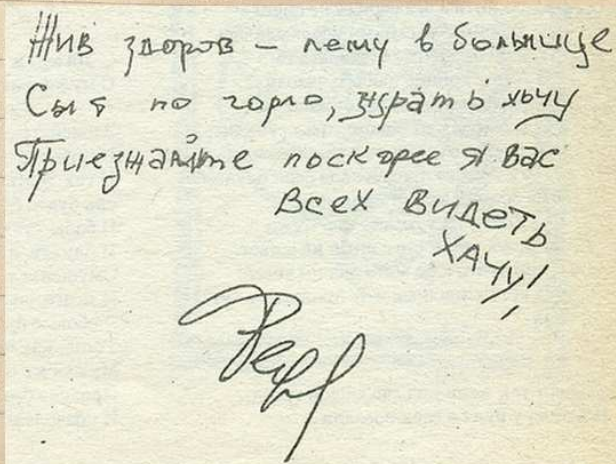 Жив здоров – лежу в больнице
Сыт по горло, жрать хочу
Приезжайте поскорее я вас
всех видеть
хачу!